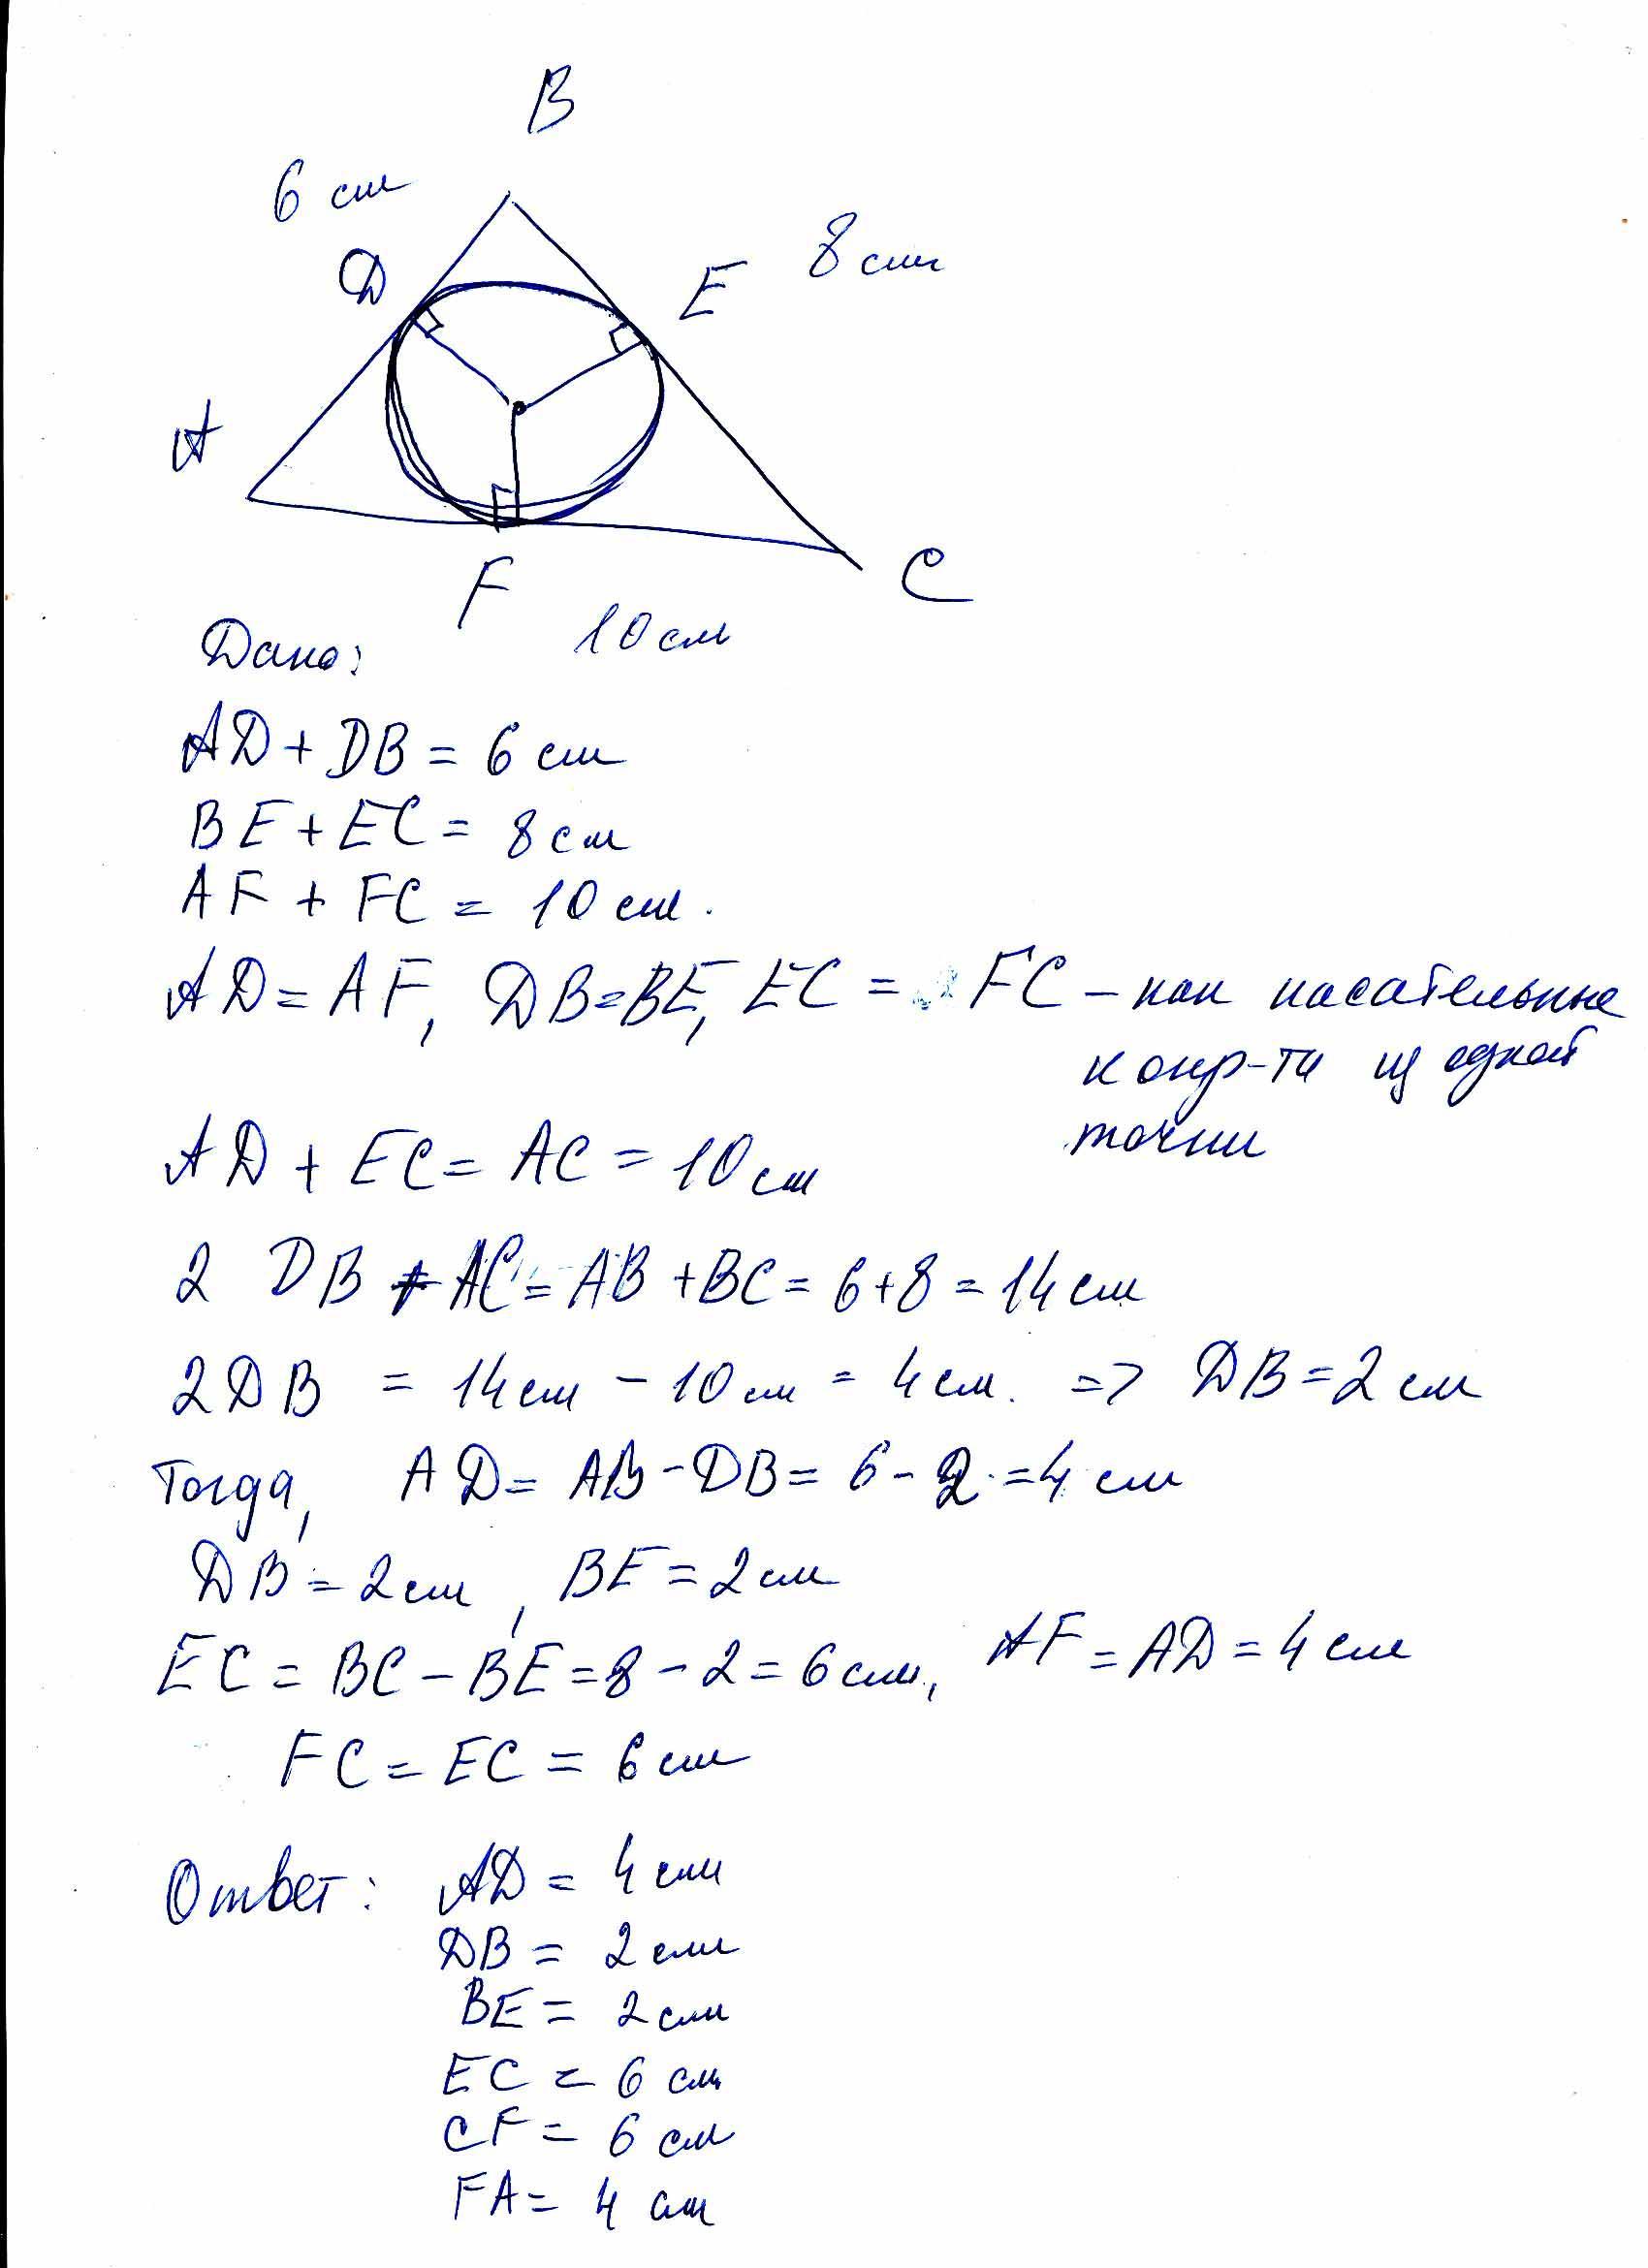 B
6 см
8 см
D
E
A
C
F
10 см
Дано:
AD + DB = 6 см
BE + EC = 8 см
AF + FC = 10 см.
AD = AF, DB = BE, EC = FC – как касательные
к окр-ти из одной
точки
AD + EC = AC = 10 см
2 DB + AC = AB + BC = 6 + 8 = 14 см
2DB = 14 см – 10 см = 4 см. => DB = 2 см
Тогда, AD = AB – DB = 6 – 2 = 4 см
DB = 2 см, BE = 2 см
EC = BC – BE = 8 – 2 = 6 см, AF = AD = 4 см
FC = EC = 6 см
Ответ: AD = 4 см
DB = 2 см
BE = 2 см
EC = 6 см
CF = 6 см
FA = 4 см